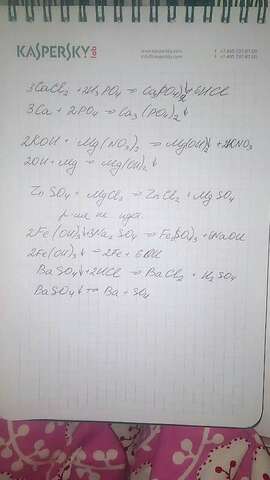 KASPERSKY lab
www.kaspersky.com
info@kaspersky.com
3CaCl₂ + 2H₃PO₄ = Ca₃(PO₄)₂↓ + 6HCl
3Ca + 2PO₄ = Ca₃(PO₄)₂↓
2KOH + Mg(NO₃)₂ = Mg(OH)₂↓ + 2KNO₃
2OH + Mg = Mg(OH)₂↓
ZnSO₄ + MgCl₂ = ZnCl₂ + MgSO₄
р-ция не идет.
2Fe(OH)₃↓ + 3Na₂SO₄ = Fe₂(SO₄)₃ + 6NaOH
2Fe(OH)₃↓ = 2Fe + 6OH
BaSO₄↓ + 2HCl = BaCl₂ + H₂SO₄
BaSO₄↓ = Ba + SO₄